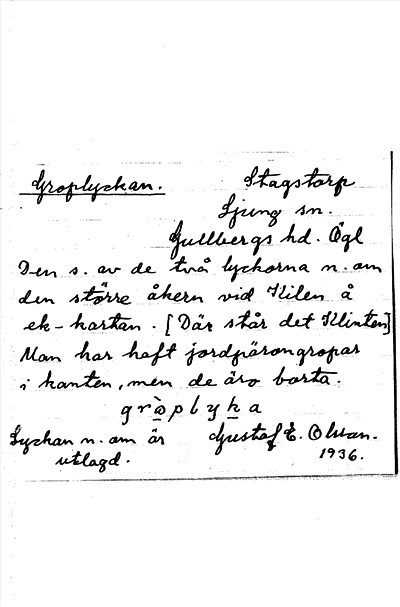 Groplyckan. Stagstorp
Ljung sn.
Gullbergs hd. Ögl
Den s. av de två lyckorna n. om
den större åkern vid Kilen å
ek-kartan. [Där står det Klinten]
Man har haft jordpärongropar
i kanten, men de äro borta.
gròplyka
Lyckan n. om är Gustaf E. Olsson.
utlagd. 1936.